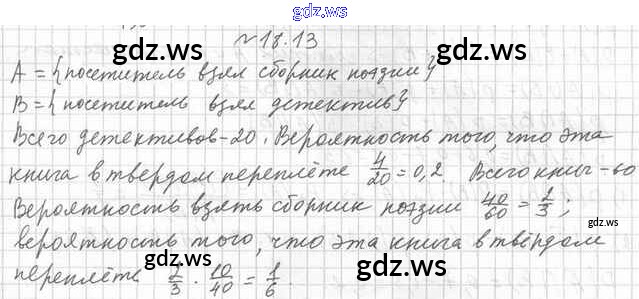 gdz.ws
№18.13
gdz.ws gdz.ws
A = {посетитель взял сборник поэзии}
B = {посетитель взял детектив}
Всего детективов-20. Вероятность того, что эта
книга в твердом переплёте 4/20 = 0,2. Всего книг-60
Вероятность взять сборник поэзии 40/60 = 2/3;
gdz.ws
вероятность того, что эта книга в твёрдом
переплёте 2/3 · 10/40 = 1/6.
gdz.ws gdz.ws